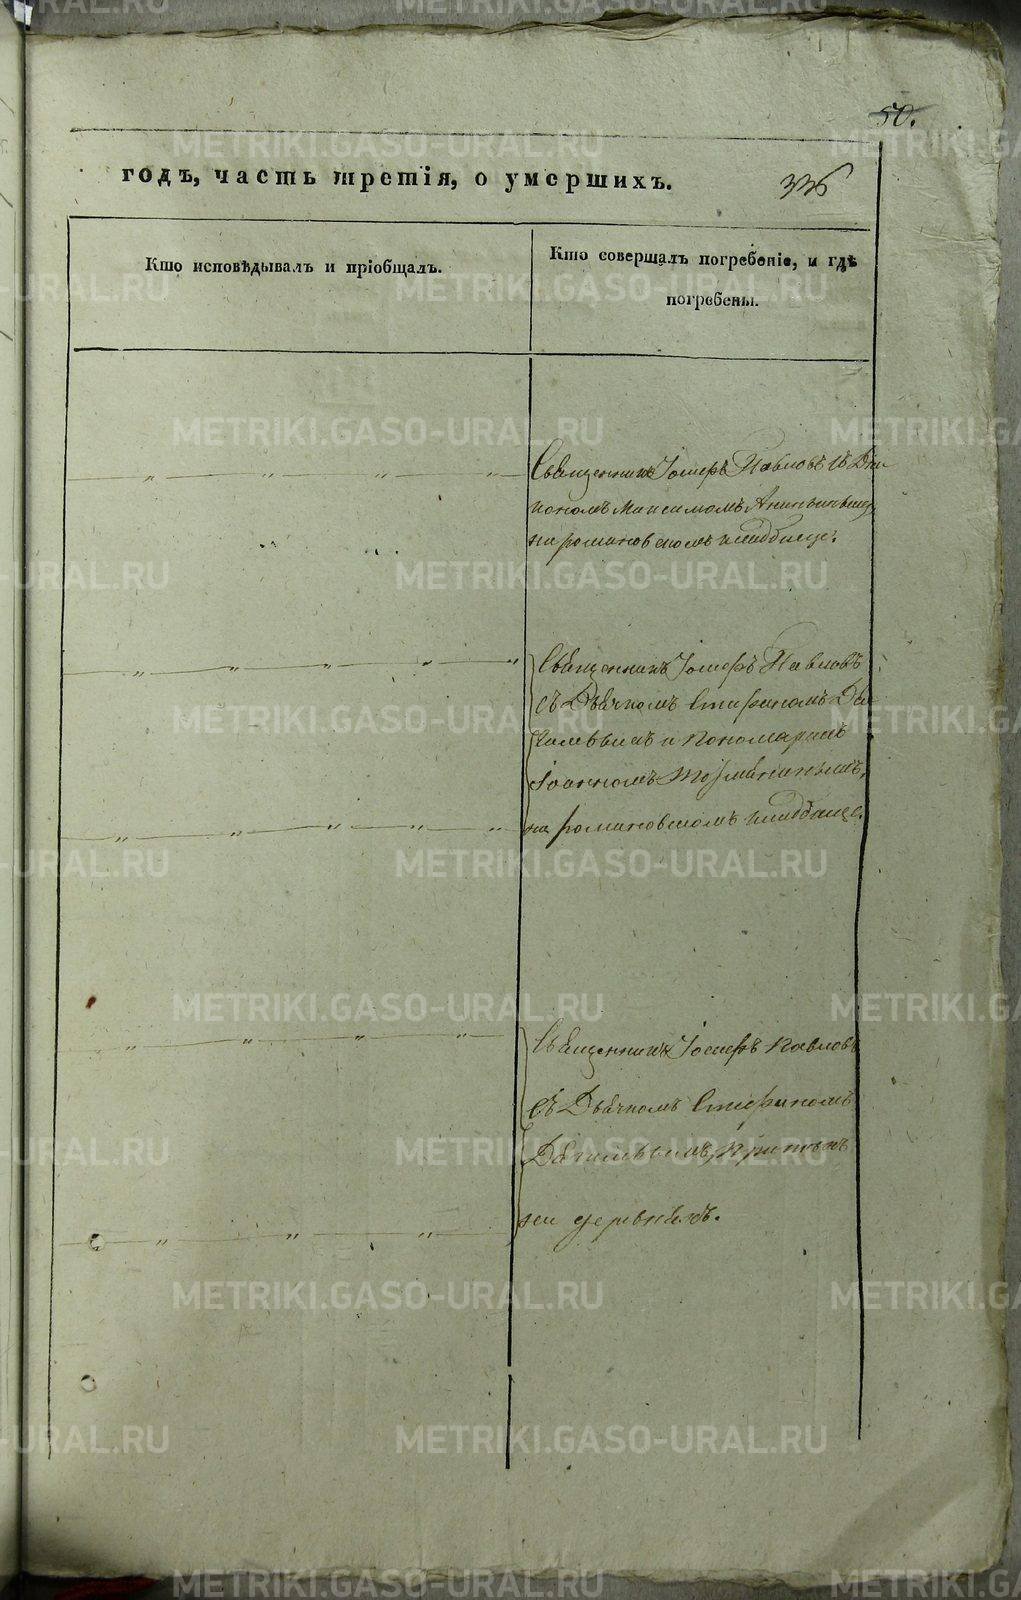 50.
годъ, часть третія, о умершихъ.
336
Кто исповѣдывалъ и пріобщалъ.
Кто совершалъ погребеніе, и гдѣ
погребены.
Священникъ Іосифъ Павловъ съ Діа
кономъ Максимомъ
на романовскомъ кладбище.
Священникъ Іосифъ Павловъ
съ Дьячкомъ Стефаномъ
и Пономаремъ
Іоанномъ
на романовскомъ кладбище.
Священникъ Іосифъ Павловъ
съ Дьячкомъ Стефаномъ
деревнѣхъ.
METRIKI.GASO-URAL.RU